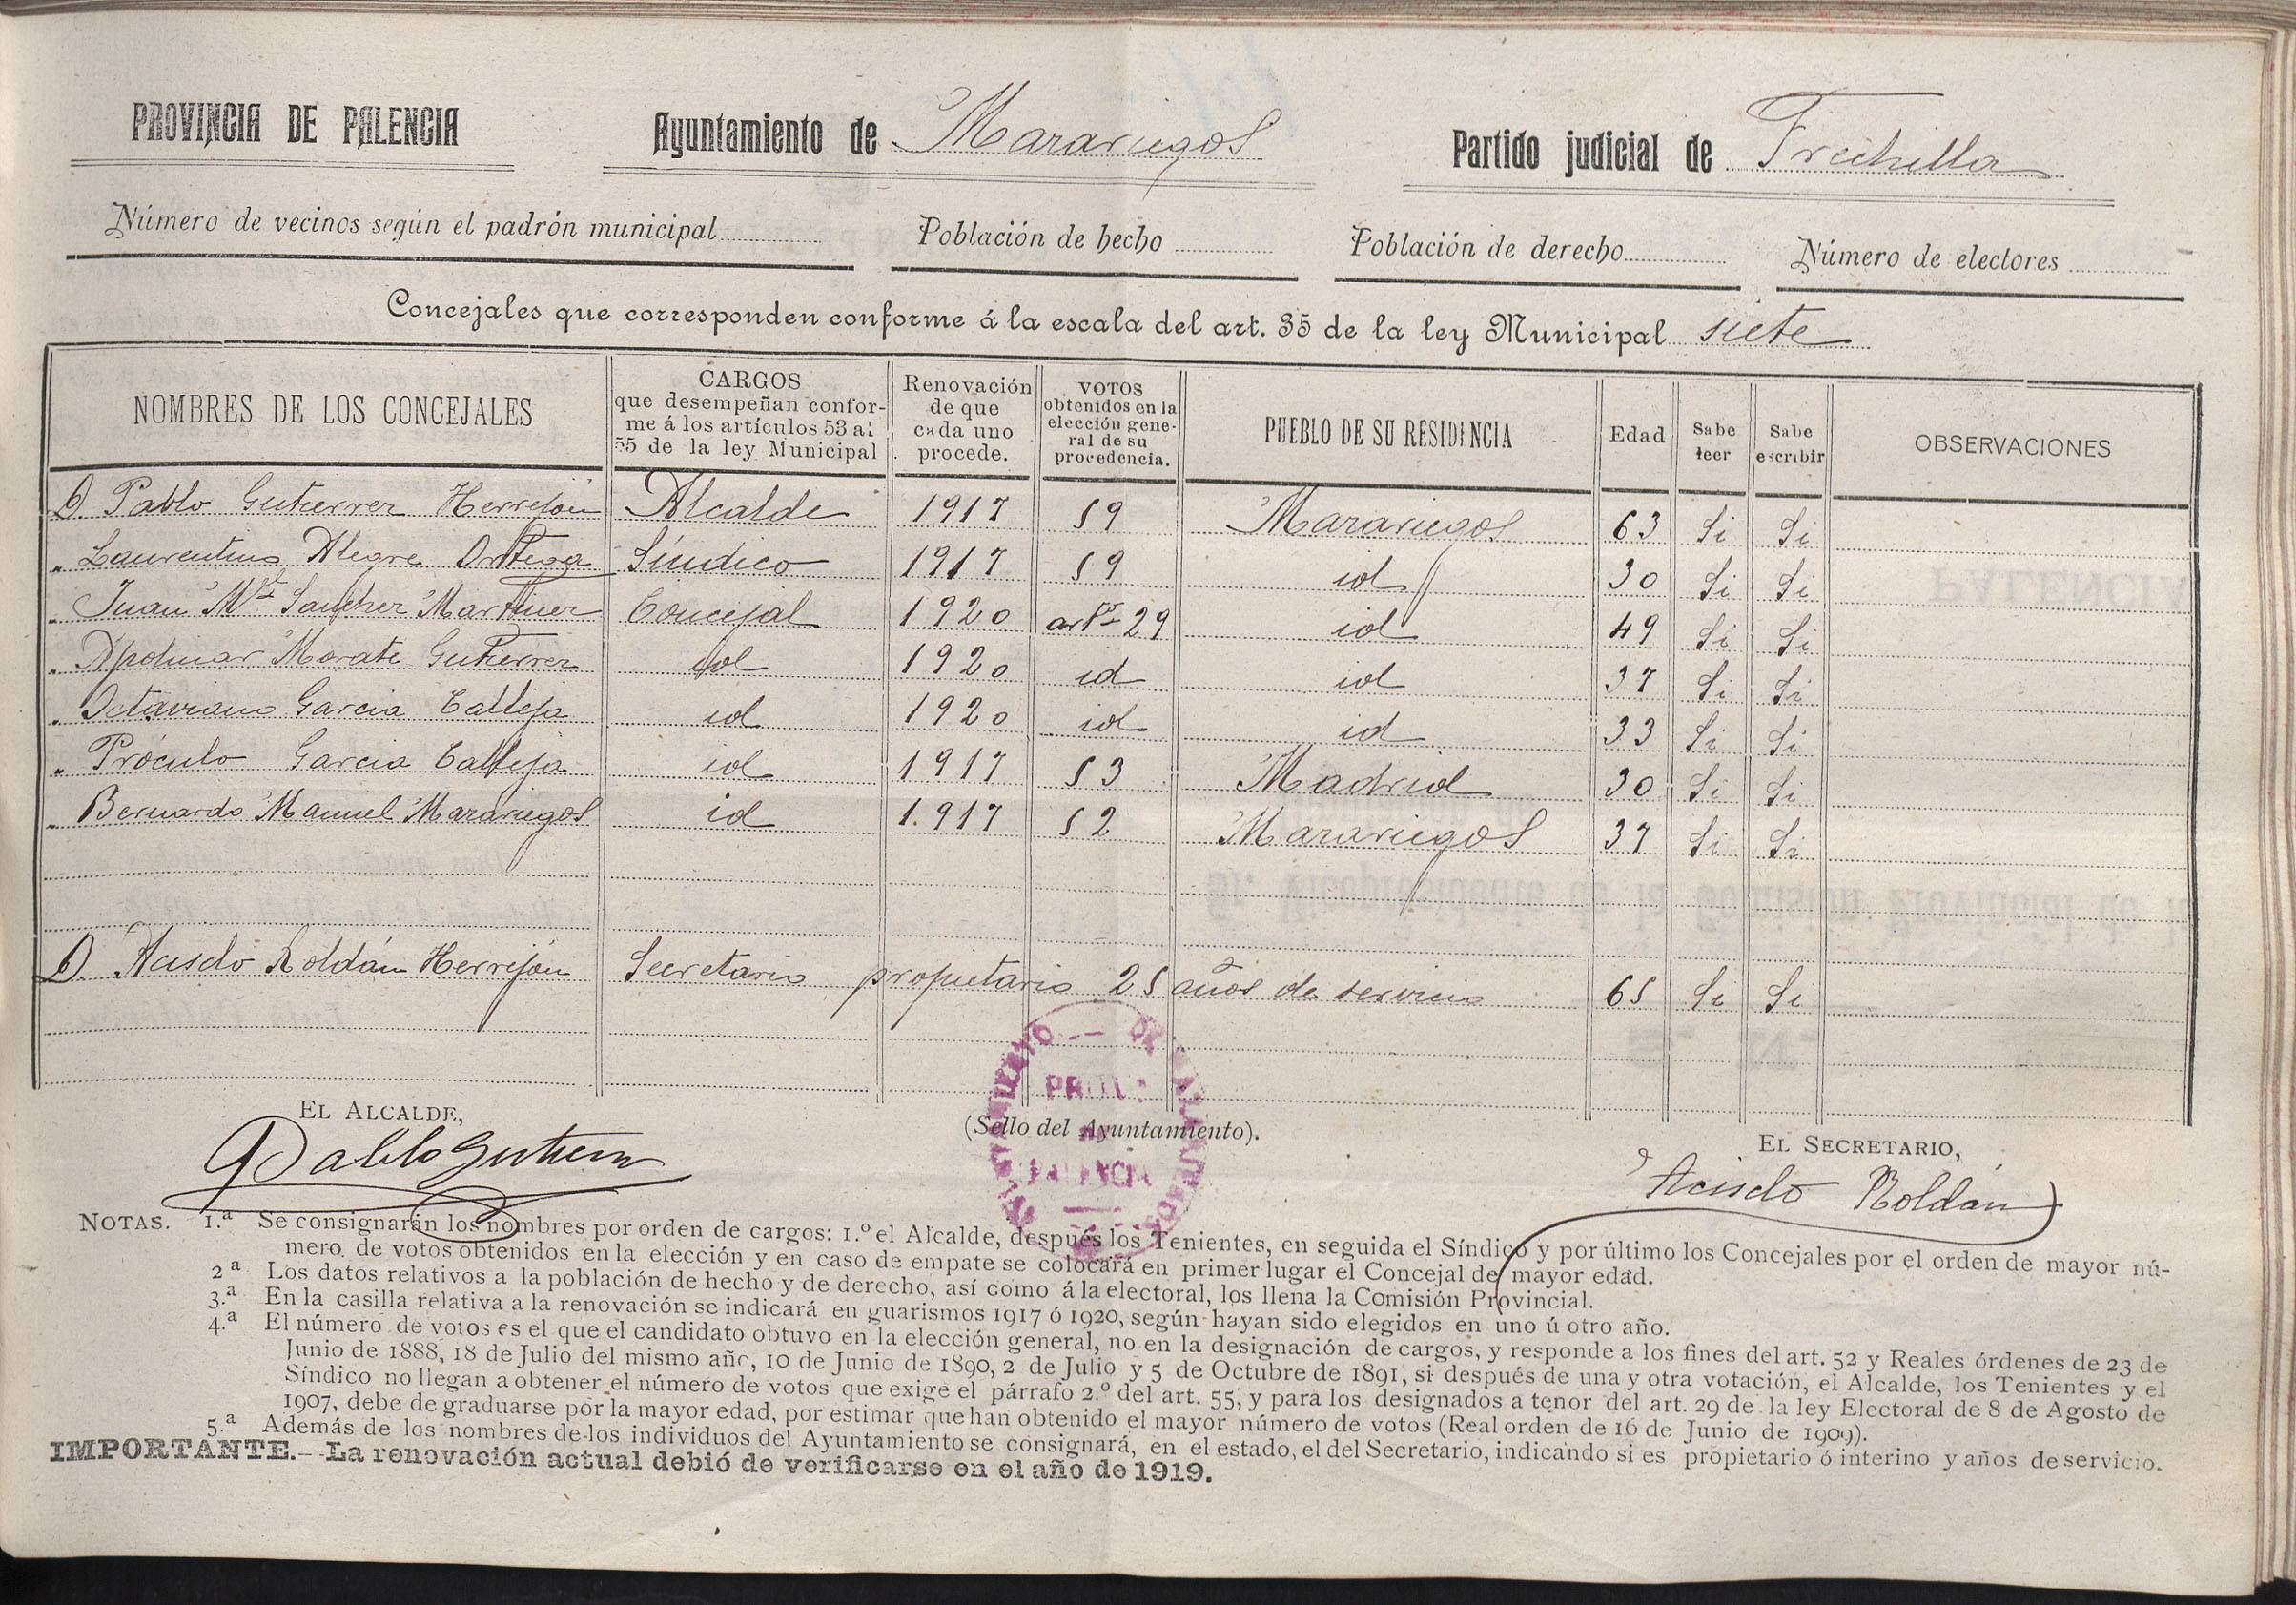 PROVINCIA DE PALENCIA Ayuntamiento de Mazariegos Partido judicial de Frechilla
Número de vecinos según el padrón municipal Población de hecho Población de derecho Número de electores
Concejales que corresponden conforme á la escala del art. 35 de la ley Municipal siete
NOMBRES DE LOS CONCEJALES CARGOS que desempeñan conforme á los artículos 53 al 55 de la ley Municipal Renovación de que cada uno procede. VOTOS obtenidos en la elección general de su procedencia. PUEBLO DE SU RESIDENCIA Edad Sabe leer Sabe escribir OBSERVACIONES
D. Pablo Gutierrez Herrejón Alcalde 1917 59 Mazariegos 63 Si Si
" Laurentino Alegre Ortega Síndico 1917 59 id 30 Si Si
" Juan Mª Sanchez Martinez Concejal 1920 artº 29 id 49 Si Si
" Apolinar Morate Gutierrez id 1920 id id 37 Si Si
" Octaviano Garcia Calleja id 1920 id id 33 Si Si
" Próculo Garcia Calleja id 1917 53 Madrid 30 Si Si
" Bernardo Manuel Mazariegos id 1917 52 Mazariegos 37 Si Si
D. Acisclo Roldán Herrejón Secretario propietario 25 años de servicio 65 Si Si
EL ALCALDE, (Sello del Ayuntamiento). EL SECRETARIO,
Pablo Gutierrez Acisclo Roldán
AYUNTAMIENTO DE MAZARIEGOS
PALENCIA
NOTAS. 1.ª Se consignarán los nombres por orden de cargos: 1.º el Alcalde, después los Tenientes, en seguida el Síndico y por último los Concejales por el orden de mayor nú-
mero de votos obtenidos en la elección y en caso de empate se colocará en primer lugar el Concejal de mayor edad.
2ª Los datos relativos a la población de hecho y de derecho, así como á la electoral, los llena la Comisión Provincial.
3.ª En la casilla relativa a la renovación se indicará en guarismos 1917 ó 1920, según hayan sido elegidos en uno ú otro año.
4.ª El número de votos es el que el candidato obtuvo en la elección general, no en la designación de cargos, y responde a los fines del art. 52 y Reales órdenes de 23 de
Junio de 1888, 18 de Julio del mismo año, 10 de Junio de 1890, 2 de Julio y 5 de Octubre de 1891, si después de una y otra votación, el Alcalde, los Tenientes y el
Síndico no llegan a obtener el número de votos que exige el párrafo 2.º del art. 55, y para los designados a tenor del art. 29 de la ley Electoral de 8 de Agosto de
1907, debe de graduarse por la mayor edad, por estimar que han obtenido el mayor número de votos (Real orden de 16 de Junio de 1909).
5.ª Además de los nombres de los individuos del Ayuntamiento se consignará, en el estado, el del Secretario, indicando si es propietario ó interino y años de servicio.
IMPORTANTE.--La renovación actual debió de verificarse en el año de 1919.